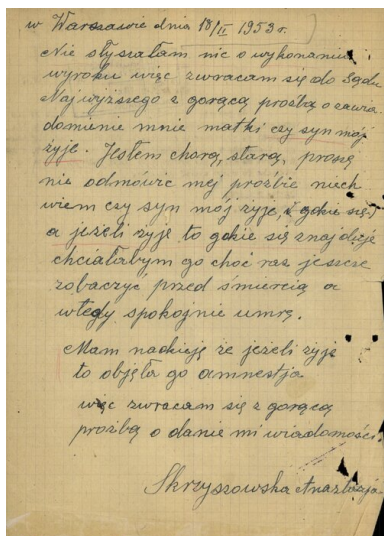 w Warszawie dnia 18/II 1953 r.
Nie słyszałam nic o wykonaniu
wyroku więc zwracam się do Sądu
Najwyższego z gorącą prośbą o zawia-
domienie mnie matki czy syn mój
żyje. Jestem chorą, starą, proszę
nie odmówić mej prośbie niech
wiem czy syn mój żyje,
a jeżeli żyje to gdzie się znajduje
chciałabym go choć raz jeszcze
zobaczyć przed śmiercią a
wtedy spokojnie umrę.
Mam nadzieję że jeżeli żyje
to objęła go amnestja
więc zwracam się z gorącą
prośbą o danie mi wiadomości.
Skrzyszowska Anastazja